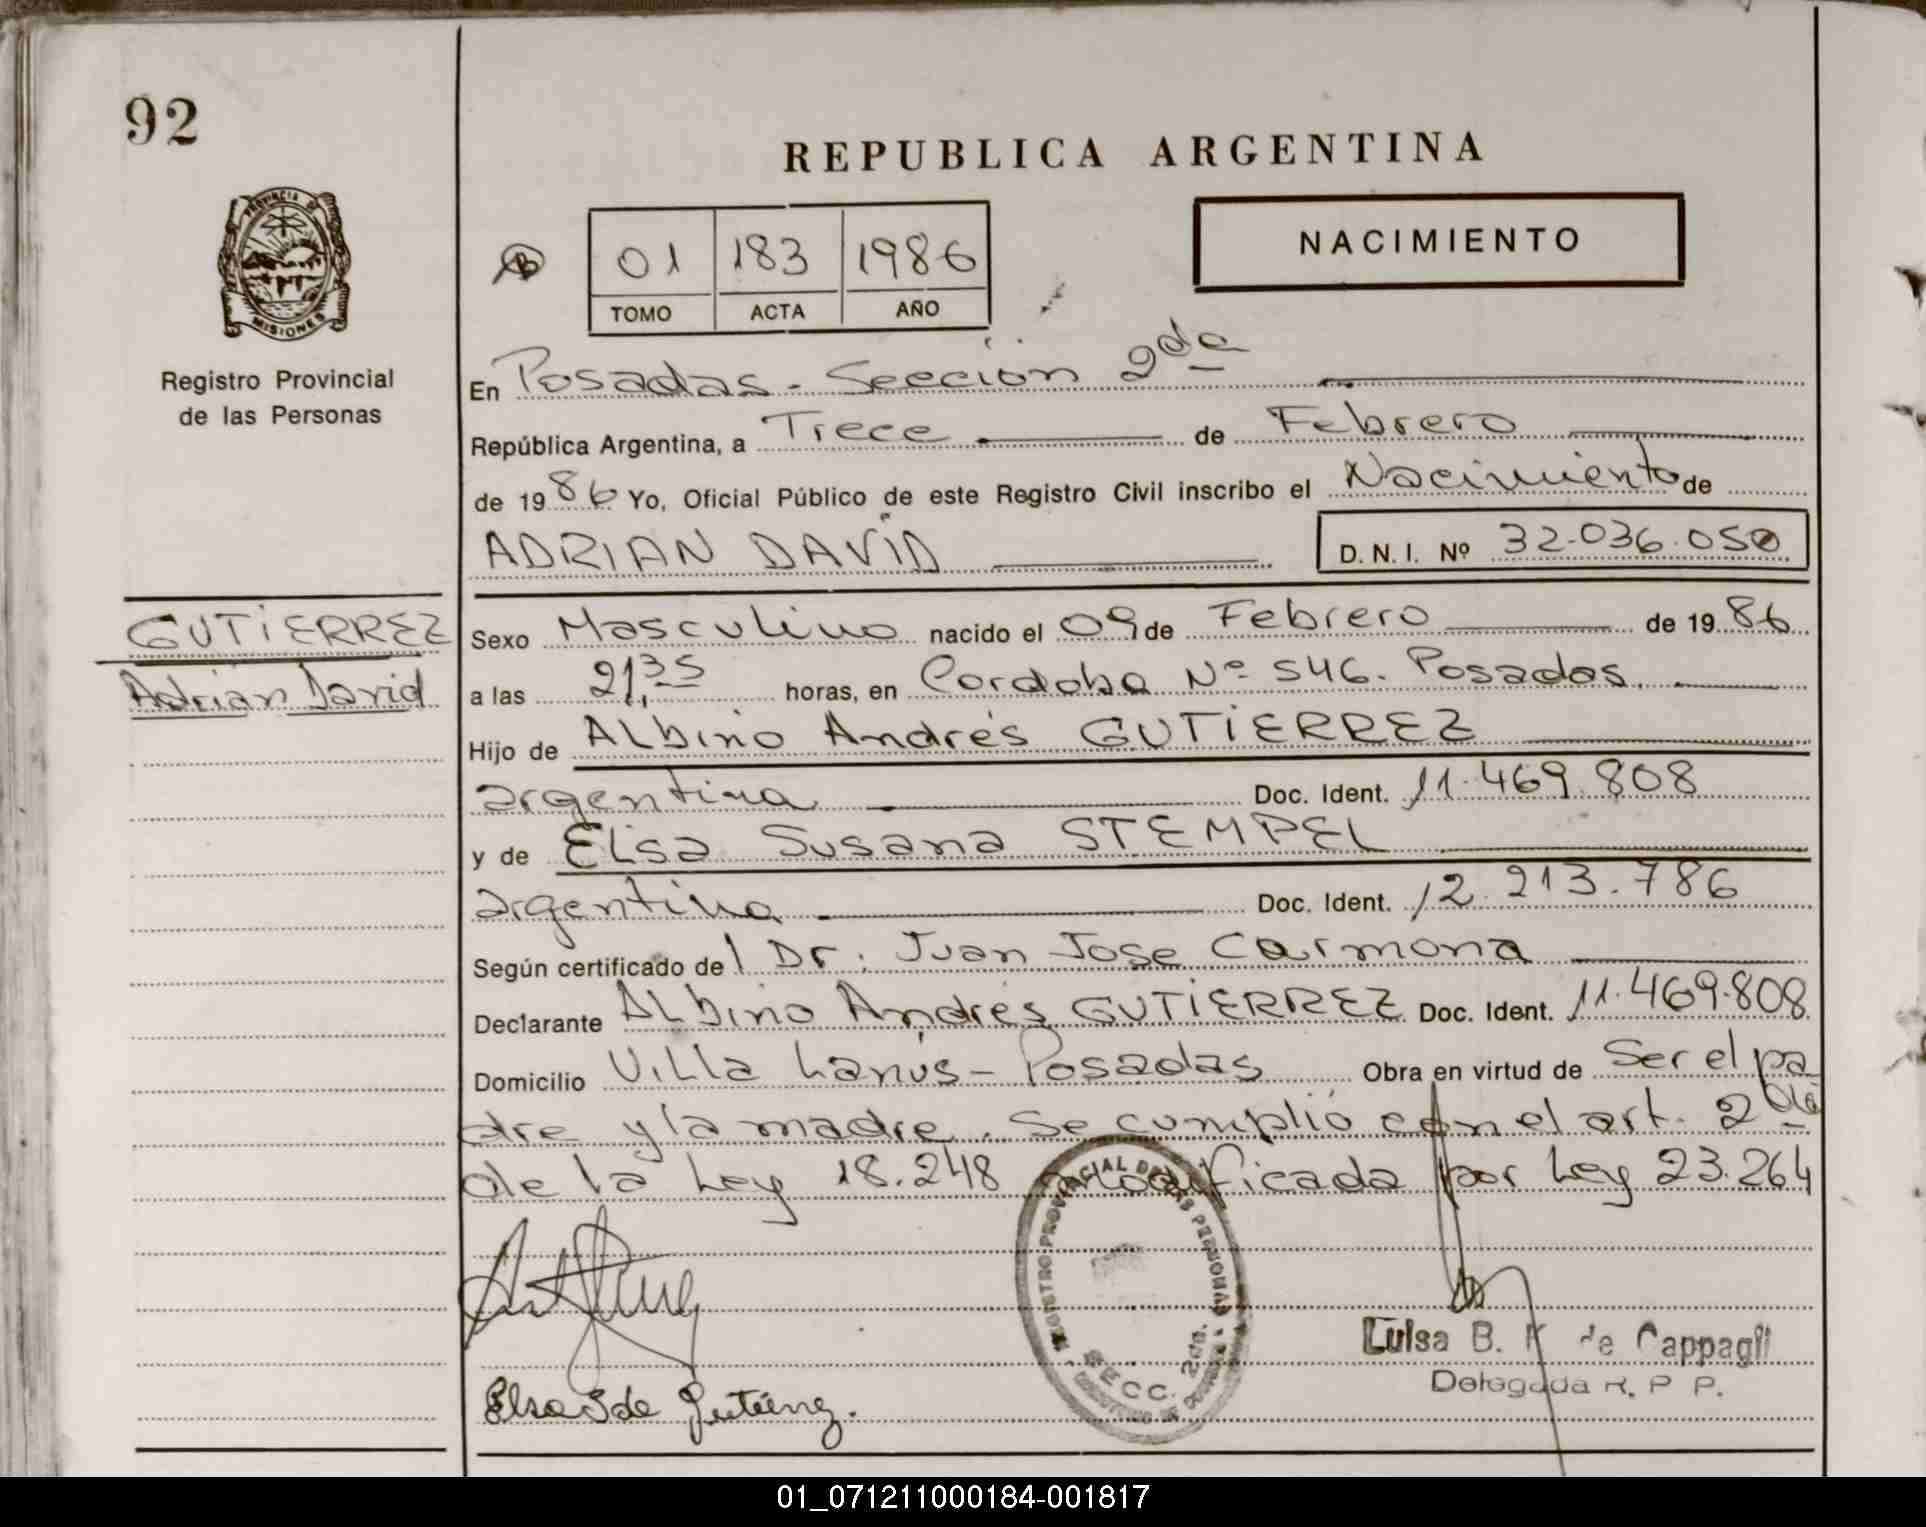 92
REPUBLICA ARGENTINA
PROVINCIA DE
MISIONES
Registro Provincial
de las Personas
01 183 1986
TOMO ACTA AÑO
NACIMIENTO
En Posadas - Sección 2da
República Argentina, a Trece de Febrero
de 1986 Yo, Oficial Público de este Registro Civil inscribo el Nacimiento de
ADRIAN DAVID D. N. I. Nº 32.036.050
GUTIERREZ
Adrian David
Sexo Masculino nacido el 09 de Febrero de 1986
a las 21,35 horas, en Cordoba Nº 546. Posadas.
Hijo de Albino Andrés GUTIERREZ
argentina Doc. Ident. 11.469.808
y de Elisa Susana STEMPEL
argentina Doc. Ident. 12.213.786
Según certificado del Dr. Juan Jose Carmona
Declarante Albino Andrés GUTIERREZ Doc. Ident. 11.469.808
Domicilio Villa Lanús - Posadas Obra en virtud de Ser el pa
dre y la madre. Se cumplió con el art. 2do
de la Ley 18.248 modificada por Ley 23.264
REGISTRO PROVINCIAL DE LAS PERSONAS
SECC. 2da.
Luisa B. K de Cappagli
Delegada R. P. P.
Elsa S de Gutiérrez.
01_071211000184-001817